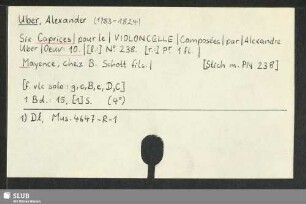 Uber, Alexander (1783-1824)
Six Caprices | pour le | VIOLONCELLE | Composées | par | Alexandre
Uber | Oeuv: 10. | [l.:] No 238. [r.:] Pr. 1 fl. |
Mayence, chez B. Schott fils. | [Stich m. PlN 238]
[F. vlc solo: g, c, B, e, D, C]
1 Bd.: 15, [1] S. (4°)
1) Dl, Mus. 4647-R-1
SLUB